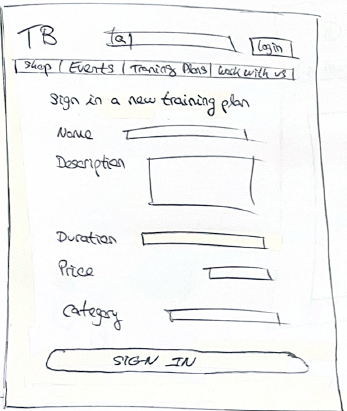 TB
Login
Shop | Events | Traning Plans | Work with us
Sign in a new training plan
Name
Description
Duration
Price
Category
SIGN IN